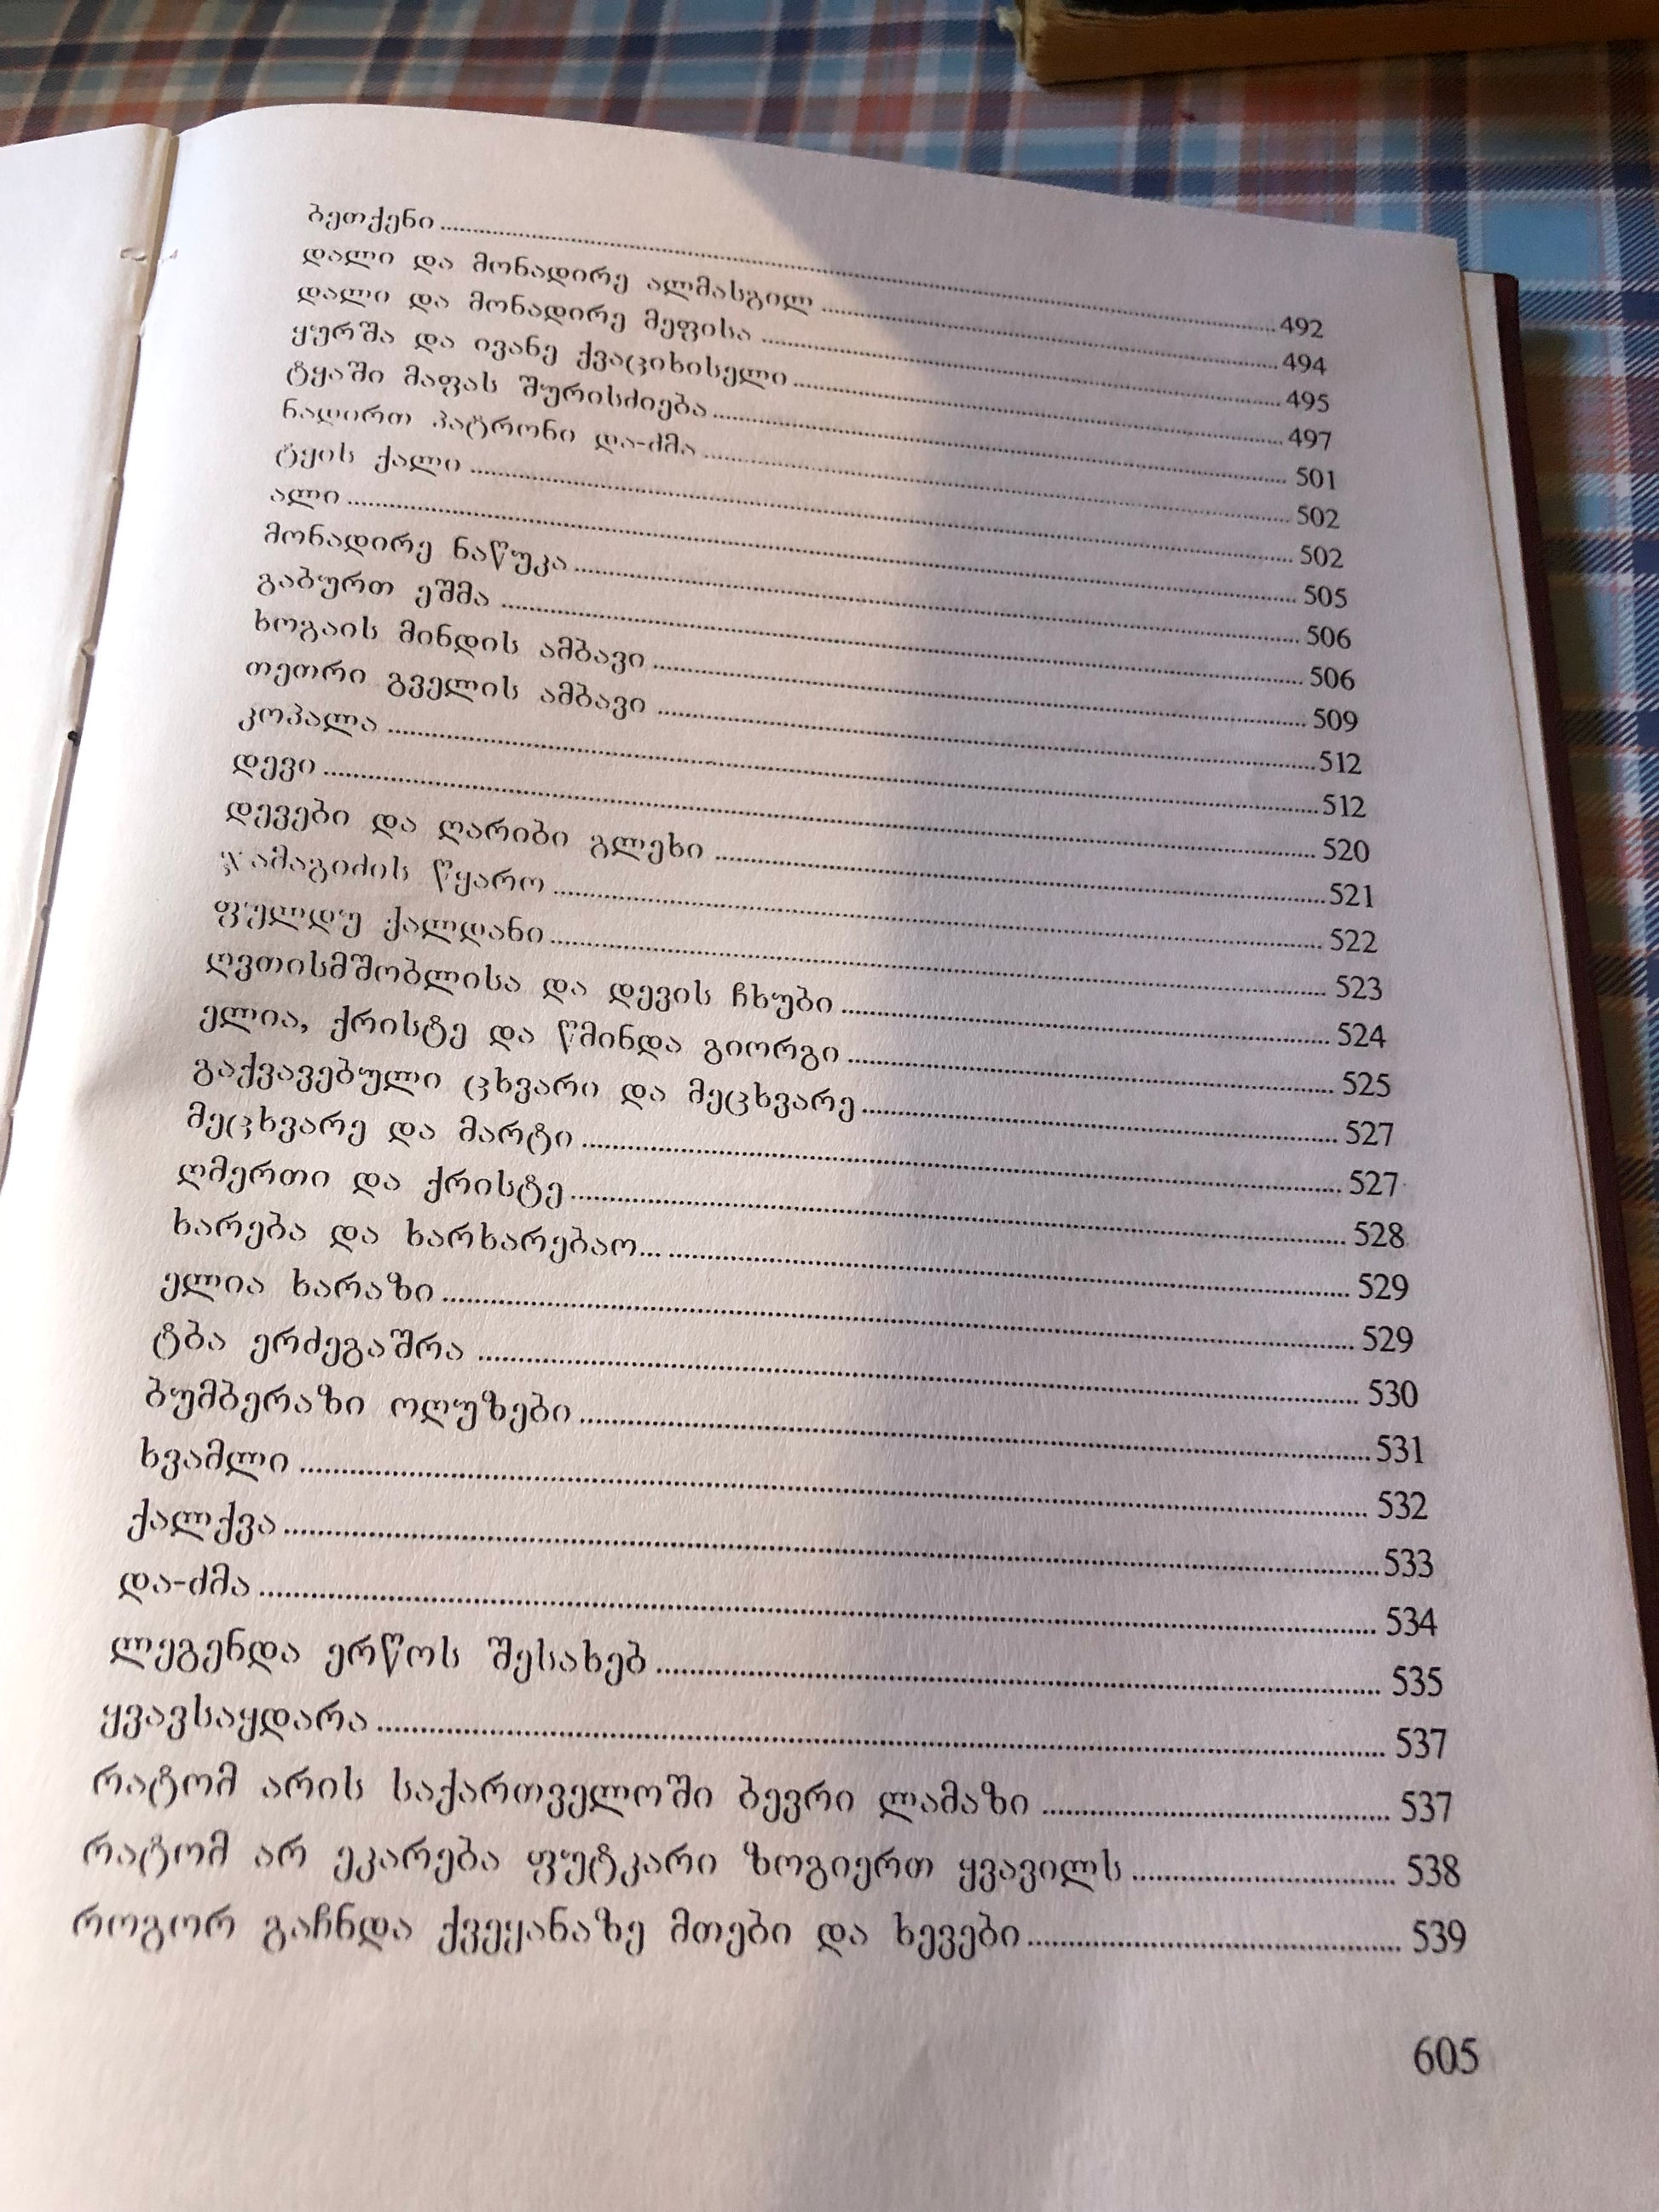 ბეთქენი ........ 492
დალი და მონადირე ალმასგილ ........ 494
დალი და მონადირე მეფისა ........ 495
ყურშა და ივანე ქვაციხისელი ........ 497
ტყაში მაფას შურისძიება ........ 501
ნადირთ პატრონი და-ძმა ........ 502
ტყის ქალი ........ 502
ალი ........ 505
მონადირე ნაწუკა ........ 506
გაბურთ ეშმა ........ 506
ხოგაის მინდის ამბავი ........ 509
თეთრი გველის ამბავი ........ 512
კოპალა ........ 512
დევი ........ 520
დევები და ღარიბი გლეხი ........ 521
ჯამაგიძის წყარო ........ 522
ფულდუ ქალდანი ........ 523
ღვთისმშობლისა და დევის ჩხუბი ........ 524
ელია, ქრისტე და წმინდა გიორგი ........ 525
გაქვავებული ცხვარი და მეცხვარე ........ 527
მეცხვარე და მარტი ........ 527
ღმერთი და ქრისტე ........ 528
ხარება და ხარხარებაო... ........ 529
ელია ხარაზი ........ 529
ტბა ერძეგაშრა ........ 530
ბუმბერაზი ოღუზები ........ 531
ხვამლი ........ 532
ქალქვა ........ 533
და-ძმა ........ 534
ლეგენდა ერწოს შესახებ ........ 535
ყვავსაყდარა ........ 537
რატომ არის საქართველოში ბევრი ლამაზი ........ 537
რატომ არ ეკარება ფუტკარი ზოგიერთ ყვავილს ........ 538
როგორ გაჩნდა ქვეყანაზე მთები და ხევები ........ 539
605